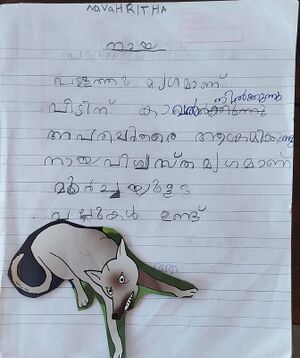 navaHRITHA
നായ
വളർത്തു മൃഗമാണ്
വീടിന് കാവൽ നിൽക്കുന്നു
അപരിചിതരെ ആക്രമിക്കുന്നു
നായ വിശ്വസ്ത മൃഗമാണ്
മൂർച്ചയുള്ള
പല്ലുകൾ ഉണ്ട്